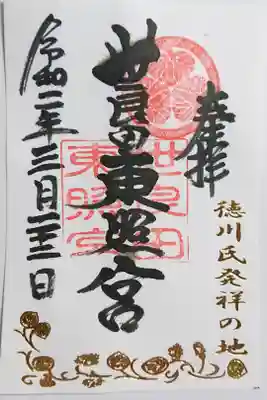 奉拝
徳川氏発祥の地
世良田東照宮
世良田
東照宮
令和二年三月二十三日